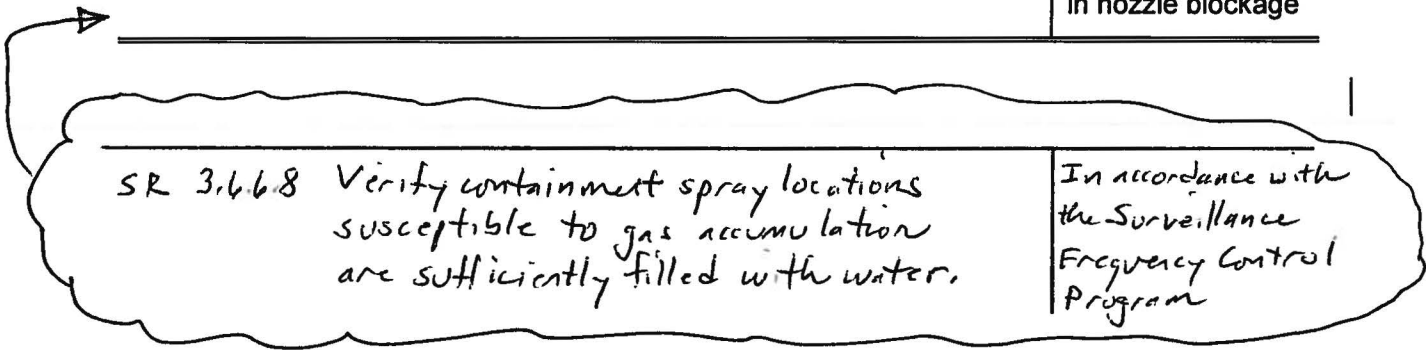 in nozzle blockage
SR 3.6.6.8 Verify containment spray locations
susceptible to gas accumulation
are sufficiently filled with water.
In accordance with
the Surveillance
Frequency Control
Program